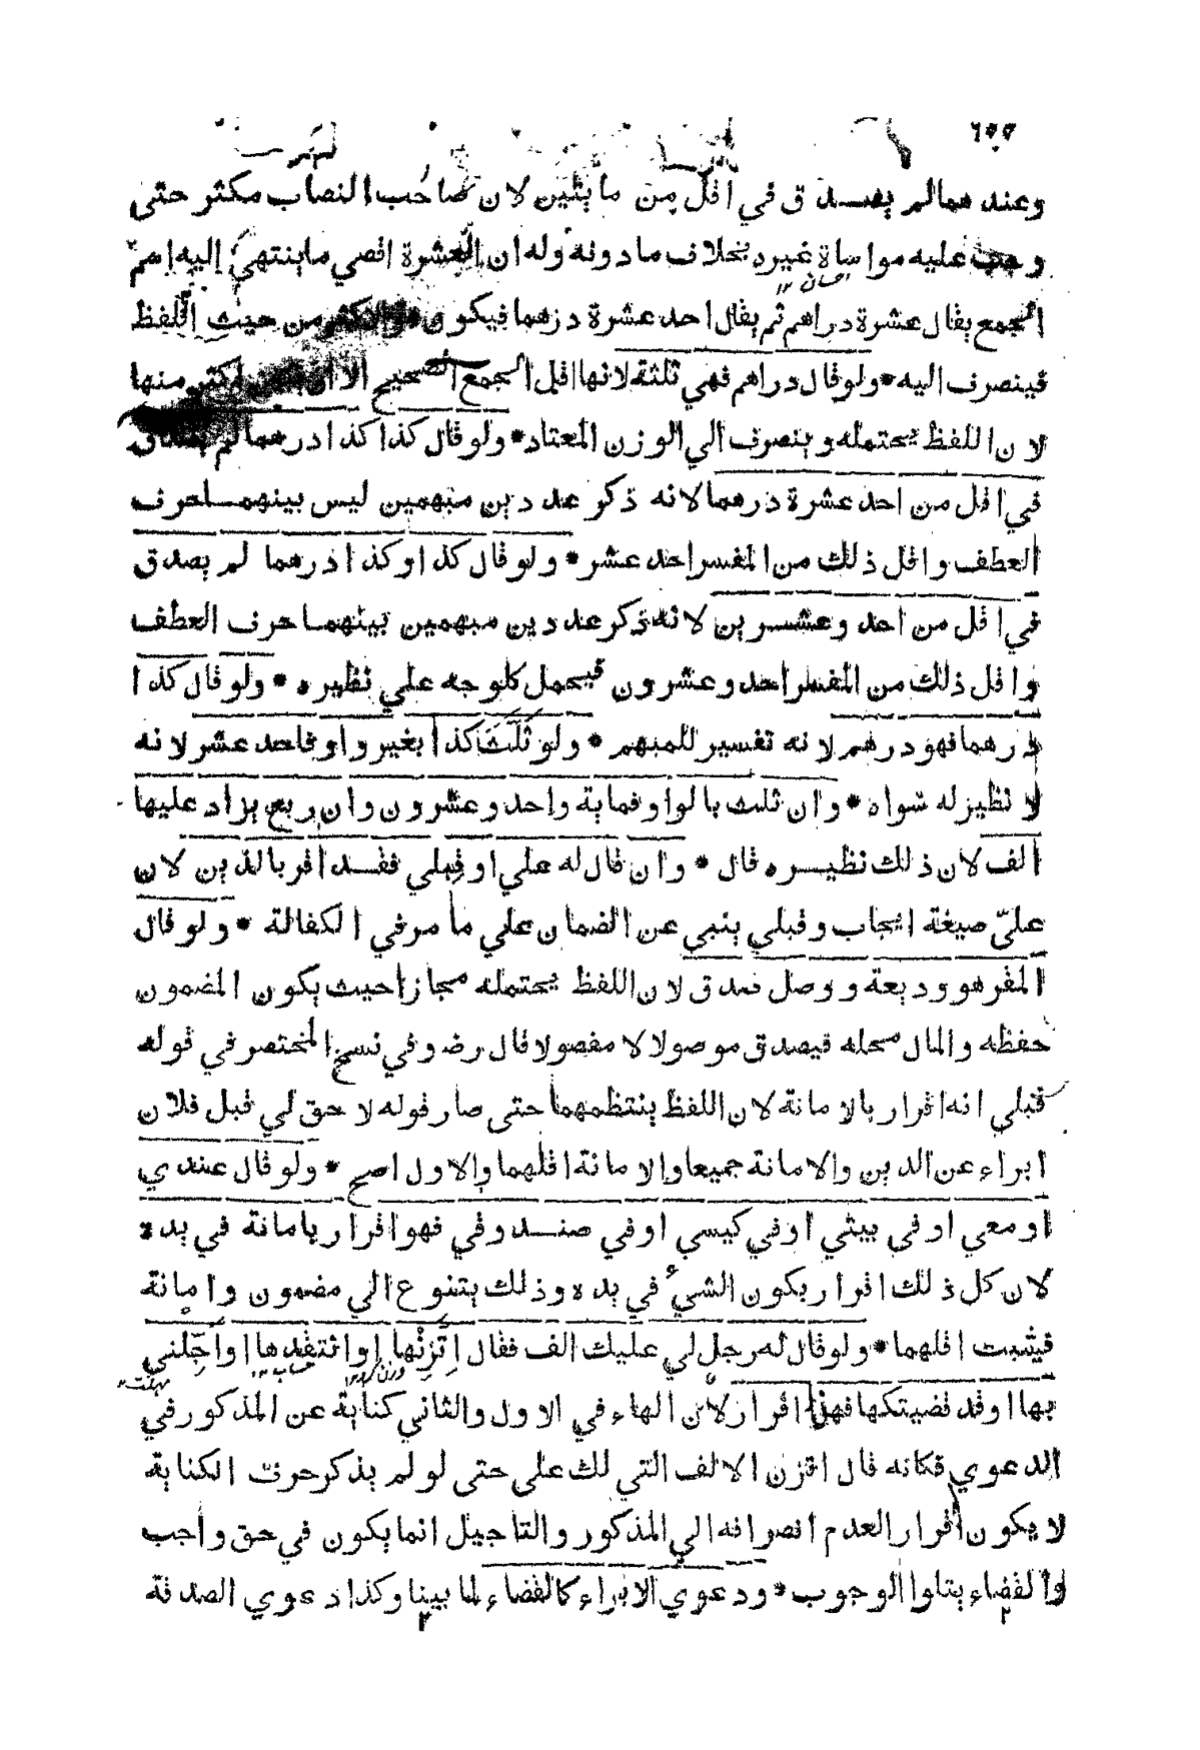 وعندهما لم يصدق في اقل من مايتين لان صاحب النصاب مكثر حتى
وجب عليه مواساة غيره بخلاف ما دونه وله ان العشرة اقصي ما ينتهي اليه اسم
الجمع يقال عشرة دراهم ثم يقال احد عشرة درهما فيكون هو الاكثر من حيث اللفظ
فينصرف اليه * ولو قال دراهم فهي ثلثة لانها اقل الجمع الصحيح الا ان يبين اكثر منها
لان اللفظ يحتمله وينصرف الي الوزن المعتاد * ولو قال كذا كذا درهما لم يصدق
في اقل من احد عشرة درهما لانه ذكر عددين مبهمين ليس بينهما حرف
العطف واقل ذلك من المفسر احد عشر * ولو قال كذا وكذا درهما لم يصدق
في اقل من احد وعشرين لانه ذكر عددين مبهمين بينهما حرف العطف
واقل ذلك من المفسر احد وعشرون فيحمل كل وجه علي نظيره * ولو قال كذا
درهما فهو درهم لانه تفسير للمبهم * ولو ثلّث كذا بغير واو فاحد عشر لانه
لا نظير له سواه * وان ثلث بالواو فماية واحد وعشرون وان ربع يزاد عليها
الف لان ذلك نظيره قال * وان قال له علي او قبلي فقد اقر بالدين لان
عليّ صيغة ايجاب وقبلي ينبي عن الضمان علي ما مر في الكفالة * ولو قال
المقر هو وديعة ووصل صدق لان اللفظ يحتمله مجازا حيث يكون المضمون
حفظه والمال محله فيصدق موصولا لا مفصولا قال رض وفي نسخ المختصر في قوله
قبلي انه اقرار بالامانة لان اللفظ ينتظمهما حتى صار قوله لا حق لي قبل فلان
ابراء عن الدين والامانة جميعا والامانة اقلهما والاول اصح * ولو قال عندي
او معي او في بيتي او في كيسي او في صندوقي فهو اقرار بامانة في يده
لان كل ذلك اقرار بكون الشيء في يده وذلك يتنوع الي مضمون وامانة
فيثبت اقلهما * ولو قال له رجل لي عليك الف فقال اتّزنها او انتقدها او اجّلني
بها او قد قضيتكها فهذا اقرار لان الهاء في الاول والثاني كناية عن المذكور في
الدعوي فكانه قال اتزن الالف التي لك علي حتى لو لم يذكر حرف الكناية
لا يكون اقرار العدم انصرافه الي المذكور والتاجيل انما يكون في حق واجب
والقضاء يتلوا الوجوب * ودعوي الابراء كالقضاء لما بينا وكذا دعوي الصدقة